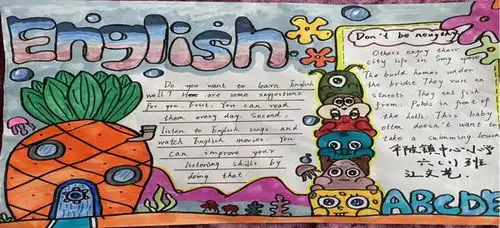 English
Do you want to learn English
well? Here are some suggestions
for you. First, You can read
them every day. Second,
listen to English songs and
watch English movies. You
can improve your
listening skills by
doing that.
Don't be nougthy
Others enjoy their
city life in Sing apore
The build homes under
the bridie They run on
streets They ent fish
from. Ponds in front of
the holls This baby
otten doesn't want to
take a swimming lesson
中心小学
六(1)班
ABCDE